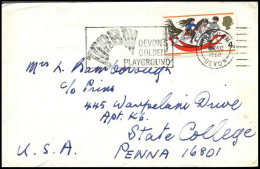 DEVON'S
GOLDEN
PLAYGROUND
DEVON
Mrs L. Bamborough
c/o Prins
445 Waupelani Drive
Apt. K6.
State College
PENNA 16801
U.S.A.